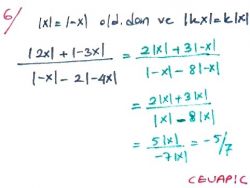 6/ |x|=|-x| old.dan ve |kx|=k|x|
|2x|+|-3x| / |-x|-2|-4x| = 2|x|+3|-x| / |-x|-8|-x|
= 2|x|+3|x| / |x|-8|x|
= 5|x| / -7|x| = -5/7
CEVAP C